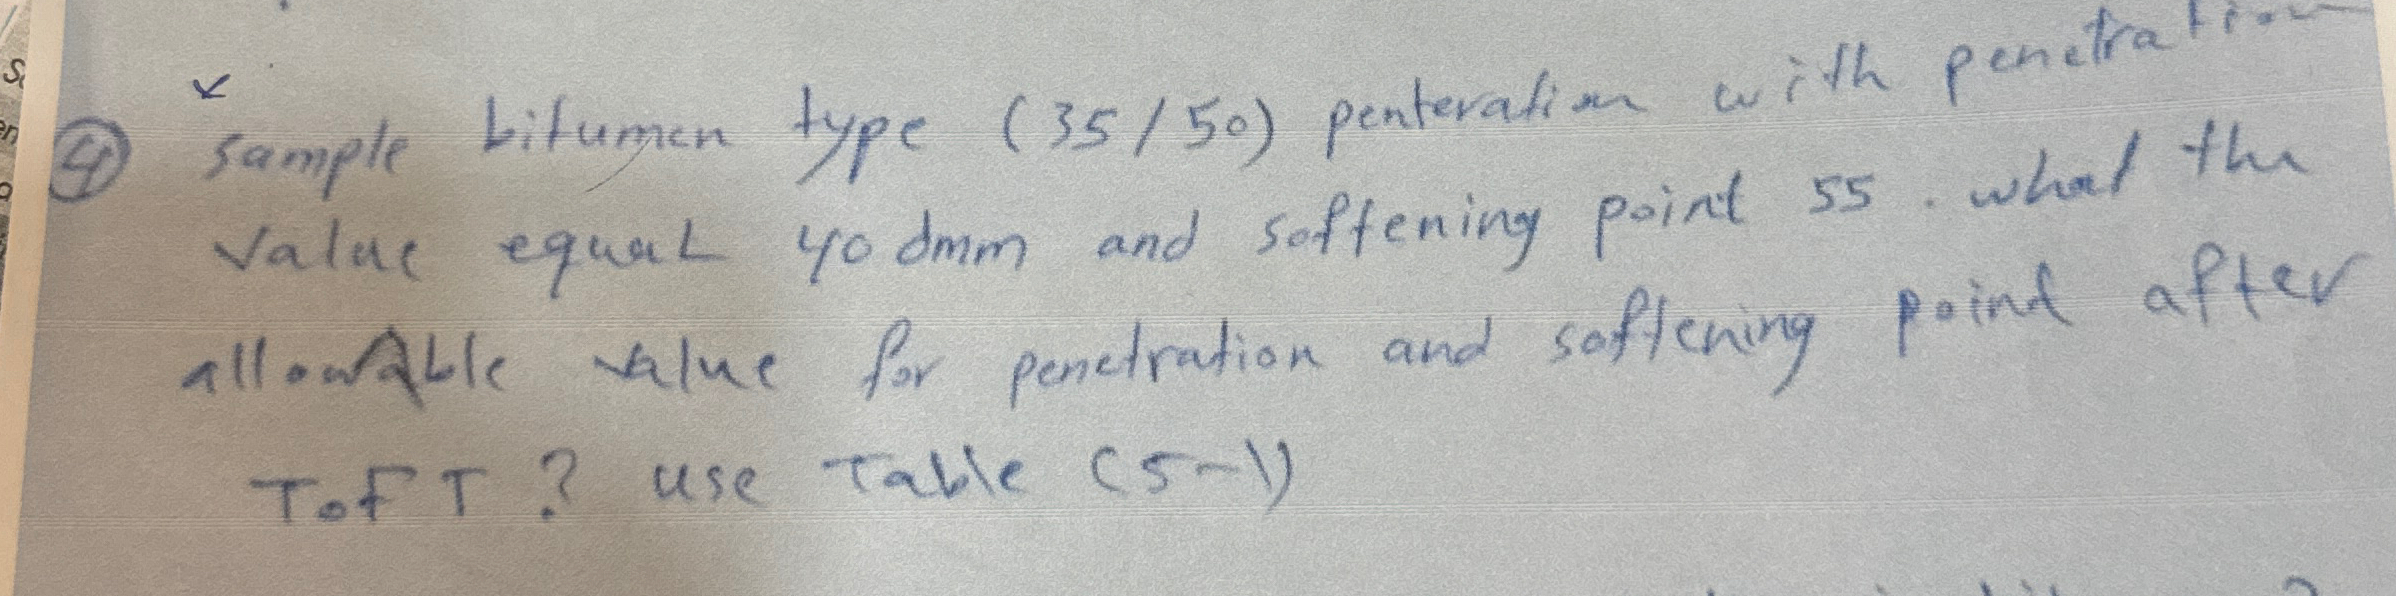 ④ sample bitumen type (35/50) penteration with penetration
value equal 40 dmm and softening point 55. what the
allowable value for penetration and softening point after
TOFT? use Table (5-1)